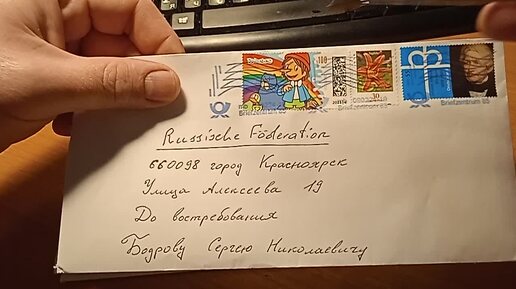 110
30
Briefzentrum 85
Briefzentrum 85
Russische Föderation
660098 город Красноярск
Улица Алексеева 19
До востребования
Бодрову Сергею Николаевичу